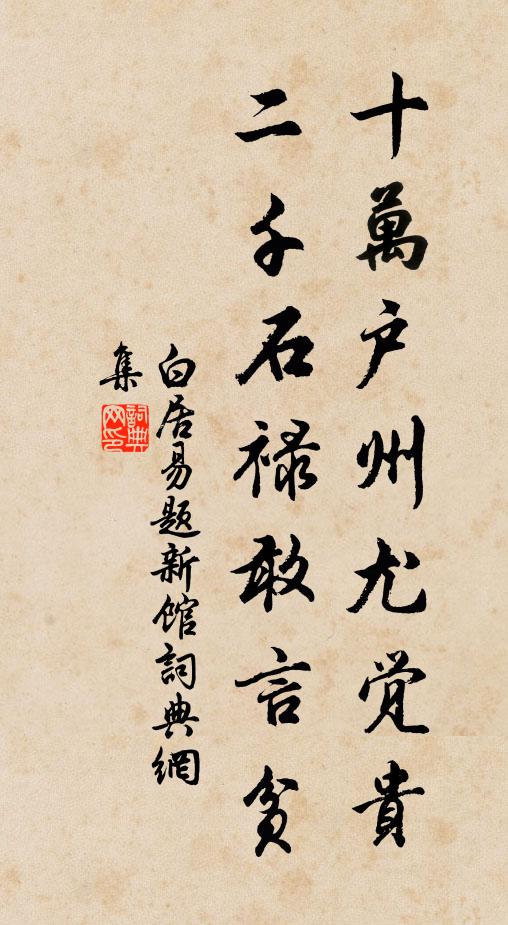 十萬户州尤觉貴
二千石禄敢言貧
白居易题新館詞典網
集
詞典
网印